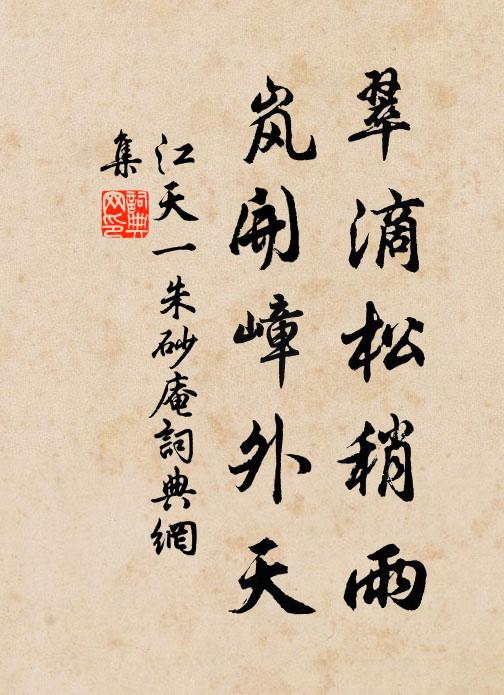 翠滴松稍雨
岚開嶂外天
江天一朱砂庵詞典網
集
詞典
网印